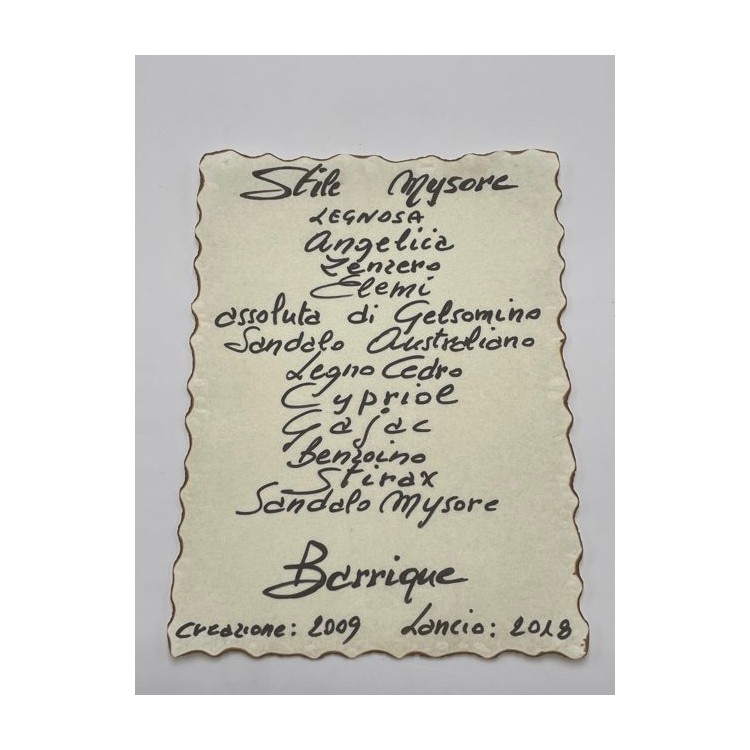 Stile Mysore
LEGNOSA
Angelica
Zenzero
Elemi
assoluta di Gelsomino
Sandalo Australiano
Legno Cedro
Cypriol
Gajac
Benzoino
Stirax
Sandalo Mysore
Barrique
Creazione: 2009 Lancio: 2018